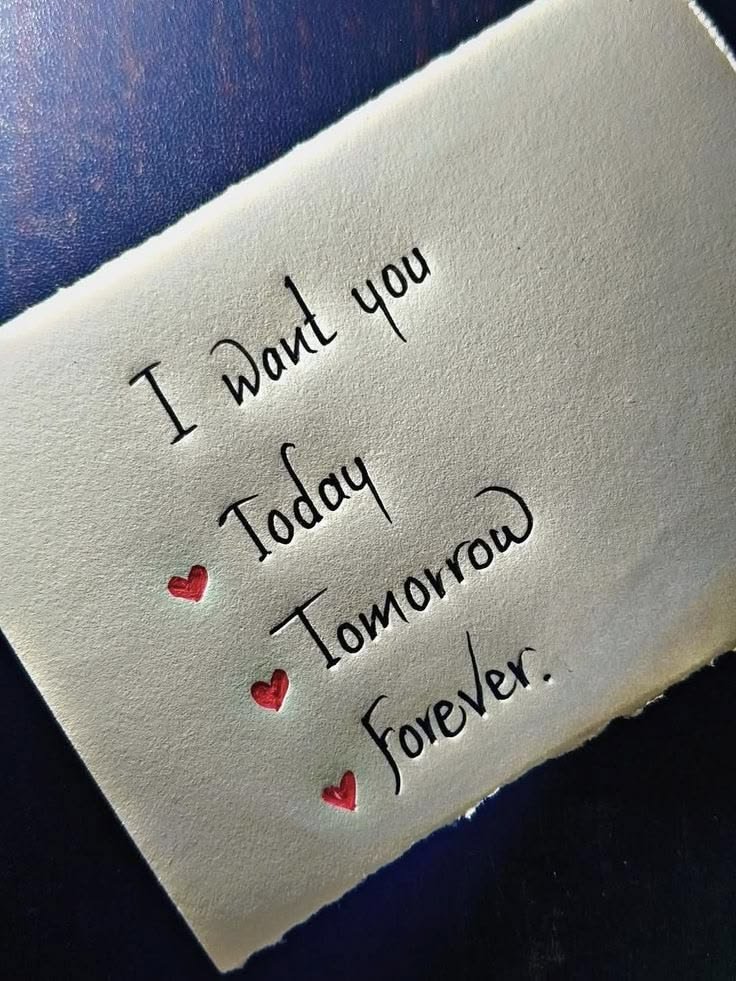 I want you
Today
Tomorrow
Forever.